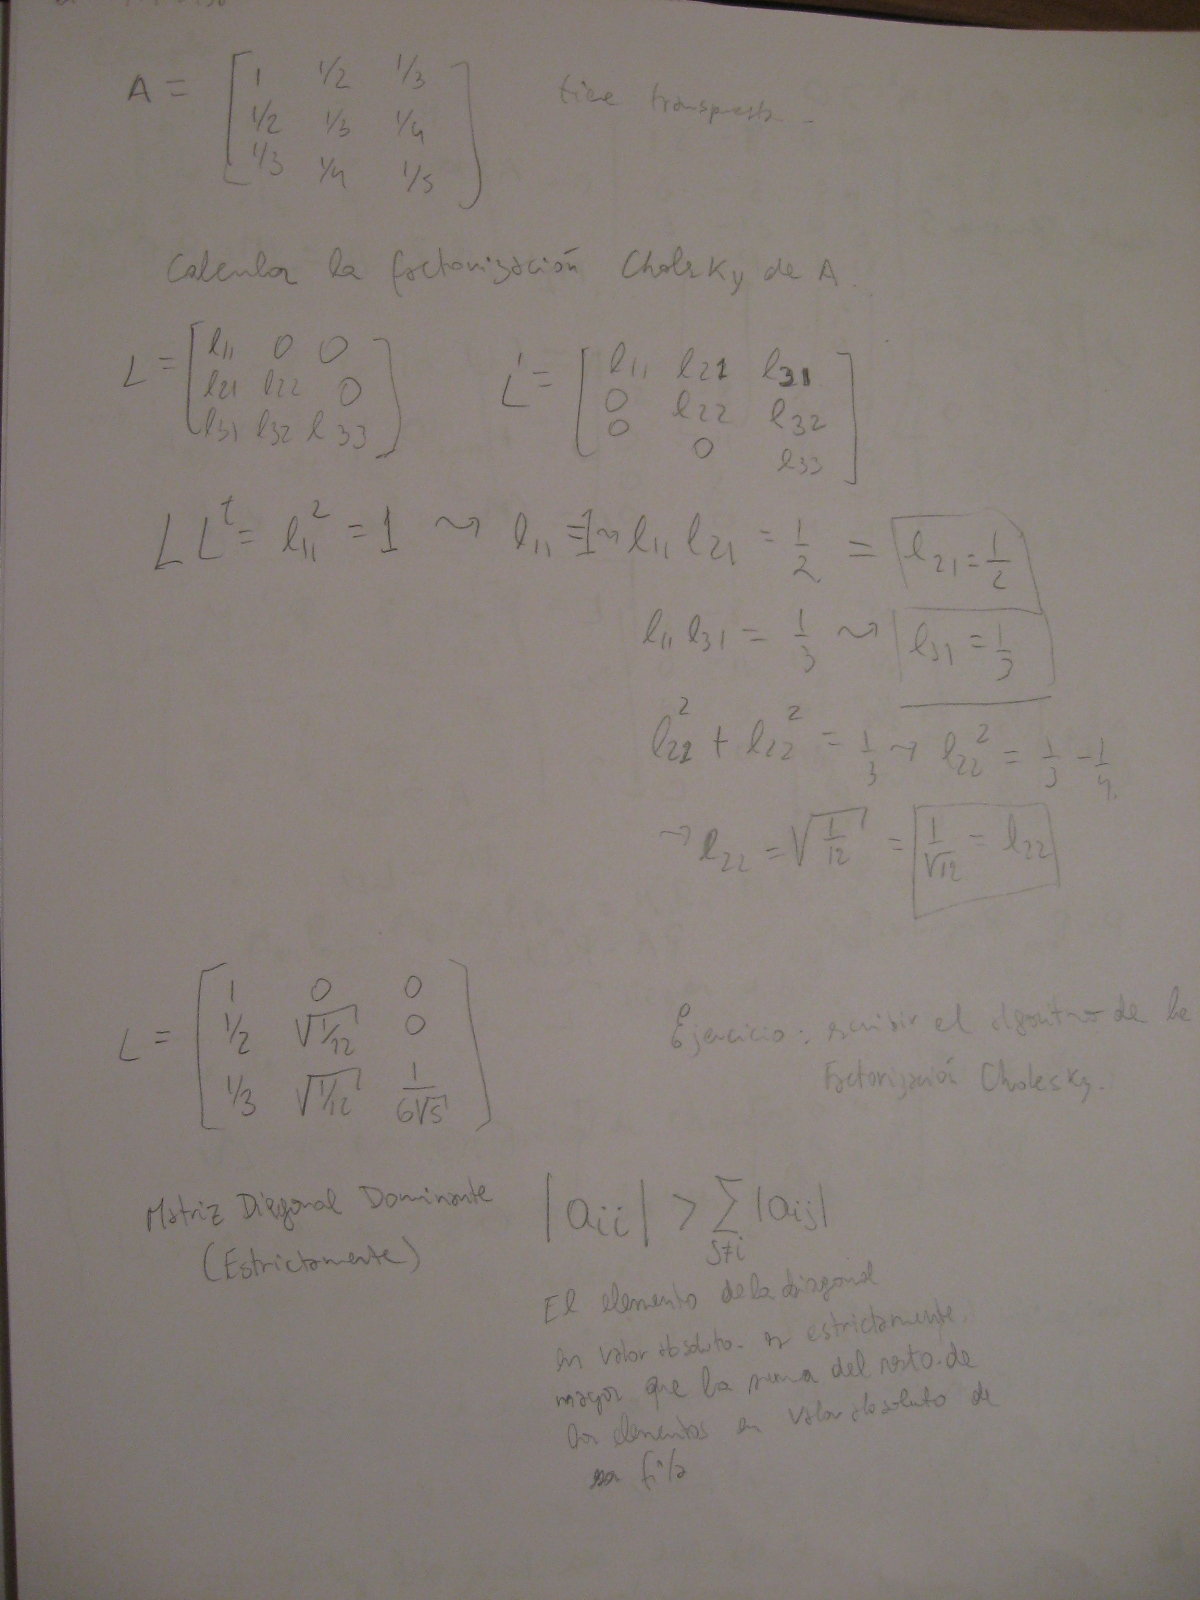 A = [ 1 1/2 1/3
1/2 1/3 1/4
1/3 1/4 1/5 ] tiene transpuesta.
Calcular la factorización Cholsky de A.
L = [ l11 0 0
l21 l22 0
l31 l32 l33 ]
L' = [ l11 l21 l31
0 l22 l32
0 0 l33 ]
L L^t = l11^2 = 1 ⇝ l11 = 1 ⇝ l11 l21 = 1/2 = l21 = 1/2
l11 l31 = 1/3 ⇝ l31 = 1/3
l21^2 + l22^2 = 1/3 → l22^2 = 1/3 - 1/4
→ l22 = √(1/12) = 1/√12 = l22
L = [ 1 0 0
1/2 √(1/12) 0
1/3 √(1/12) 1/(6√5) ]
Ejercicio: escribir el algoritmo de la
Factorización Cholesky.
Matriz Diagonal Dominante
(Estrictamente)
|aii| > Σ |aij|
j≠i
El elemento de la diagonal
en valor absoluto. es estrictamente.
mayor que la suma del resto de
los elementos en valor absoluto de
su fila